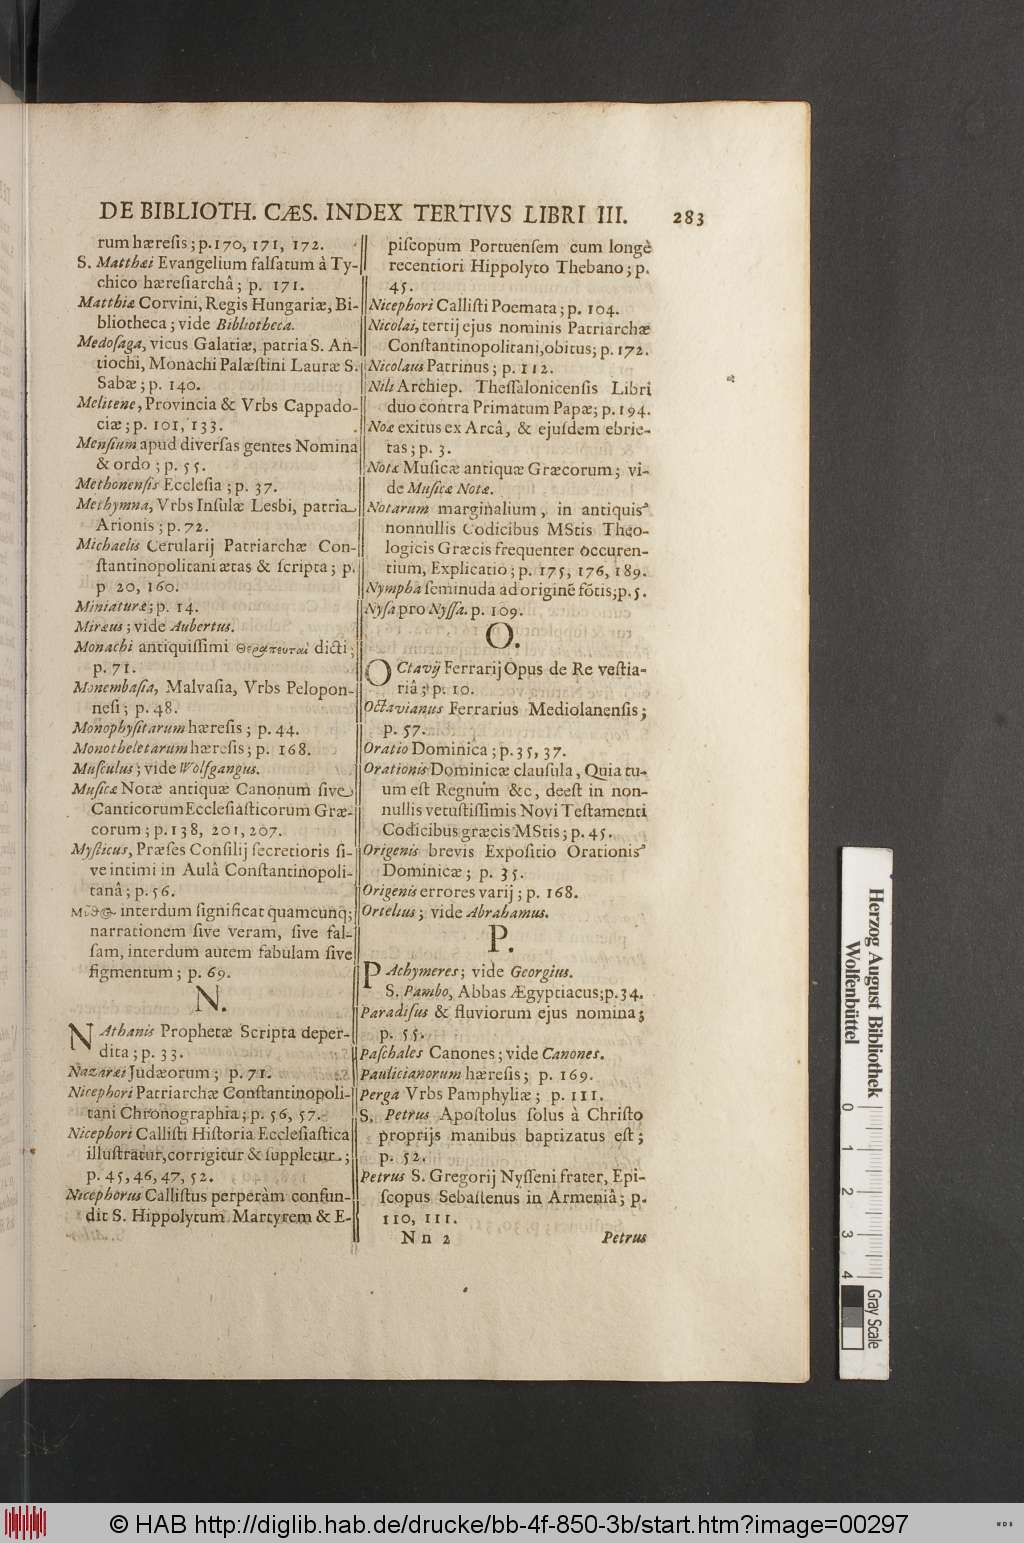 DE BIBLIOTH. CÆS. INDEX TERTIVS LIBRI III. 283
rum hæreſis; p. 170, 171, 172.
S. Matthæi Evangelium falſatum à Ty-
chico hæreſiarchâ; p. 171.
Matthiæ Corvini, Regis Hungariæ, Bi-
bliotheca; vide Bibliotheca.
Medoſaga, vicus Galatiæ, patria S. An-
tiochi, Monachi Palæſtini Lauræ S.
Sabæ; p. 140.
Melitene, Provincia & Vrbs Cappado-
ciæ; p. 101, 133.
Menſium apud diverſas gentes Nomina
& ordo; p. 55.
Methonenſis Eccleſia; p. 37.
Methymna, Vrbs Inſulæ Lesbi, patria
Arionis; p. 72.
Michaelis Cerularij Patriarchæ Con-
ſtantinopolitani ætas & ſcripta; p.
p 20, 160.
Miniaturæ; p. 14.
Miræus; vide Aubertus.
Monachi antiquiſſimi θεραπευταὶ dicti;
p. 71.
Monembaſia, Malvaſia, Vrbs Pelopon-
neſi; p. 48.
Monophyſitarum hæreſis; p. 44.
Monotheletarum hæreſis; p. 168.
Muſculus; vide Wolfgangus.
Muſicæ Notæ antiquæ Canonum ſive
Canticorum Eccleſiaſticorum Græ-
corum; p. 138, 201, 207.
Myſticus, Præſes Conſilij ſecretioris ſi-
ve intimi in Aulâ Conſtantinopoli-
tanâ; p. 56.
μῦθος interdum ſignificat quamcunq;
narrationem ſive veram, ſive fal-
ſam, interdum autem fabulam ſive
figmentum; p. 69.
N.
NAthanis Prophetæ Scripta deper-
dita; p. 33.
Nazaræi Judæorum; p. 71.
Nicephori Patriarchæ Conſtantinopoli-
tani Chronographia; p. 56, 57.
Nicephori Calliſti Hiſtoria Eccleſiaſtica
illuſtratur, corrigitur & ſuppletur;
p. 45, 46, 47, 52.
Nicephorus Calliſtus perperàm confun-
dit S. Hippolytum Martyrem & E-
piſcopum Portuenſem cum longè
recentiori Hippolyto Thebano; p.
45.
Nicephori Calliſti Poemata; p. 104.
Nicolai, tertij ejus nominis Patriarchæ
Conſtantinopolitani, obitus; p. 172.
Nicolaus Patrinus; p. 112.
Nili Archiep. Theſſalonicenſis Libri
duo contra Primatum Papæ; p. 194.
Noæ exitus ex Arcâ, & ejuſdem ebrie-
tas; p. 3.
Notæ Muſicæ antiquæ Græcorum; vi-
de Muſicæ Notæ.
Notarum marginalium, in antiquis
nonnullis Codicibus MStis Theo-
logicis Græcis frequenter occuren-
tium, Explicatio; p. 175, 176, 189.
Nympha ſeminuda ad originē fōtis; p. 5.
Nyſa pro Nyſſa. p. 109.
O.
OCtavij Ferrarij Opus de Re veſtia-
riâ; p. 10.
Octavianus Ferrarius Mediolanenſis;
p. 57.
Oratio Dominica; p. 35, 37.
Orationis Dominicæ clauſula, Quia tu-
um eſt Regnum &c, deeſt in non-
nullis vetuſtiſſimis Novi Teſtamenti
Codicibus græcis MStis; p. 45.
Origenis brevis Expoſitio Orationis
Dominicæ; p. 35.
Origenis errores varij; p. 168.
Ortelius; vide Abrahamus.
P.
PAchymeres; vide Georgius.
S. Pambo, Abbas Ægyptiacus; p. 34.
Paradiſus & fluviorum ejus nomina;
p. 55.
Paſchales Canones; vide Canones.
Paulicianorum hæreſis; p. 169.
Perga Vrbs Pamphyliæ; p. 111.
S. Petrus Apoſtolus ſolus à Chriſto
proprijs manibus baptizatus eſt;
p. 52.
Petrus S. Gregorij Nyſſeni frater, Epi-
ſcopus Sebaſtenus in Armeniâ; p.
110, 111.
Nn 2 Petrus
Herzog August Bibliothek
Wolfenbüttel
0 1 2 3 4
Gray Scale
© HAB http://diglib.hab.de/drucke/bb-4f-850-3b/start.htm?image=00297
WDB